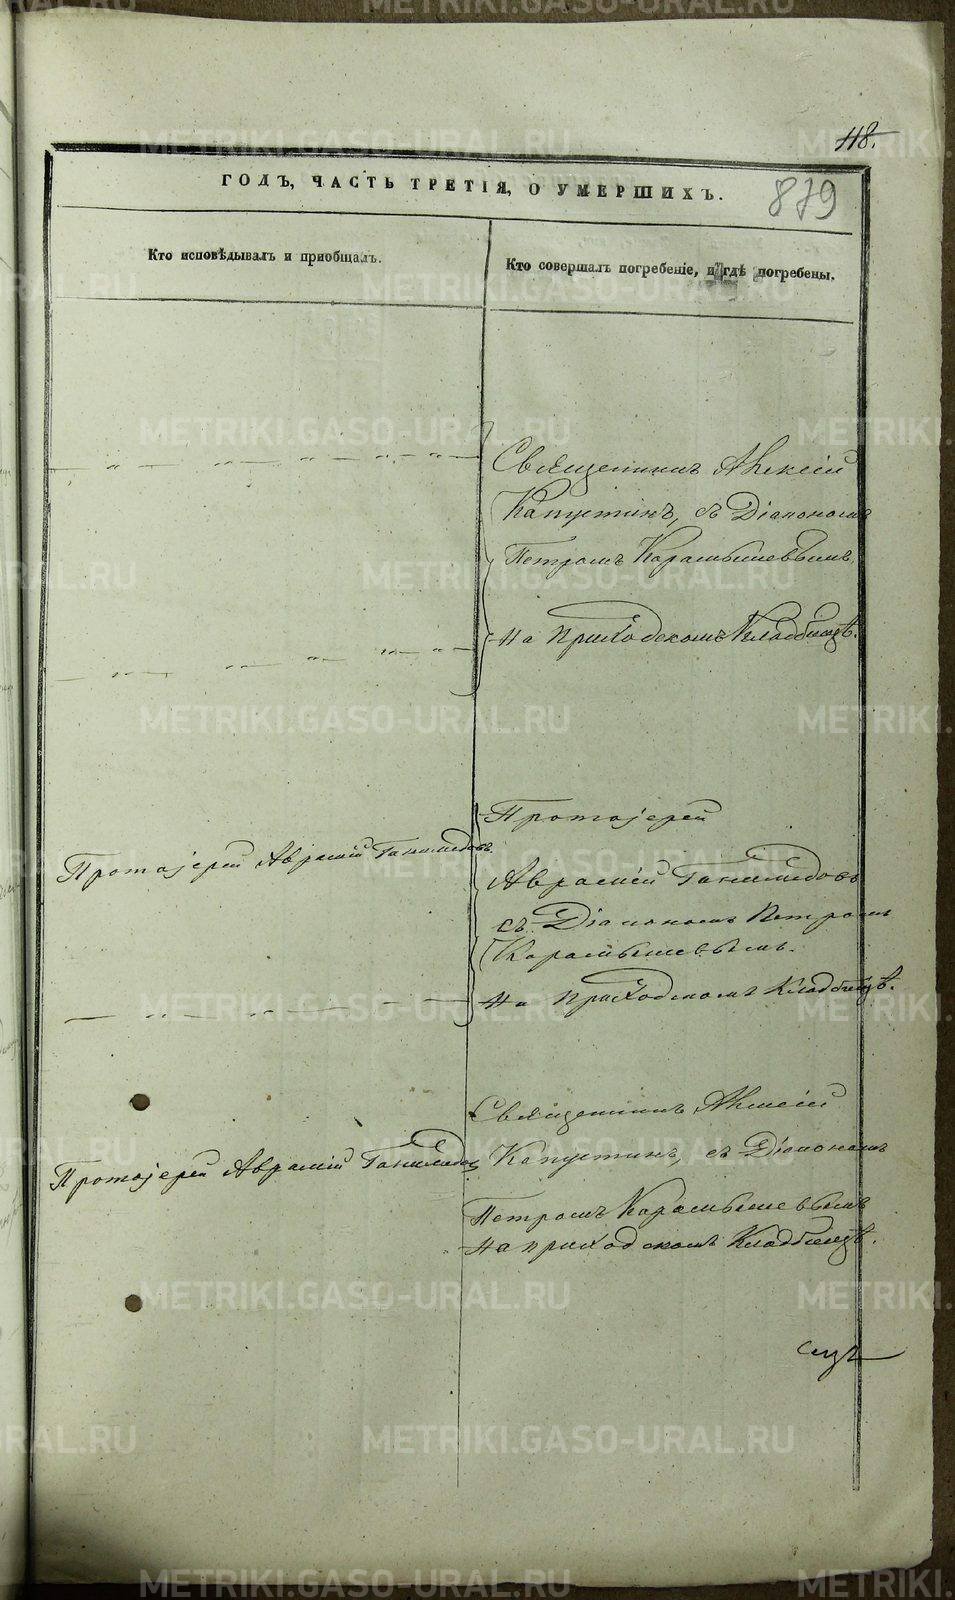 118.
ГОДЪ, ЧАСТЬ ТРЕТІЯ, О УМЕРШИХЪ.
879
Кто исповѣдывалъ и приобщалъ.
Кто совершалъ погребеніе, и гдѣ погребены.
Священникъ Алексій
Капустинъ, съ Діакономъ
Петромъ Карамышевымъ
На Приходскомъ Кладбищѣ.
Протоіерей Авраамій Ганимедовъ
Протоіерей
Авраамій Ганимедовъ
съ Діакономъ Петромъ
Карамышевымъ.
На Приходскомъ Кладбищѣ.
Протоіерей Авраамій Ганимедовъ
Священникъ Алексій
Капустинъ, съ Діакономъ
Петромъ Карамышевымъ
На приходскомъ Кладбищѣ.
METRIKI.GASO-URAL.RU